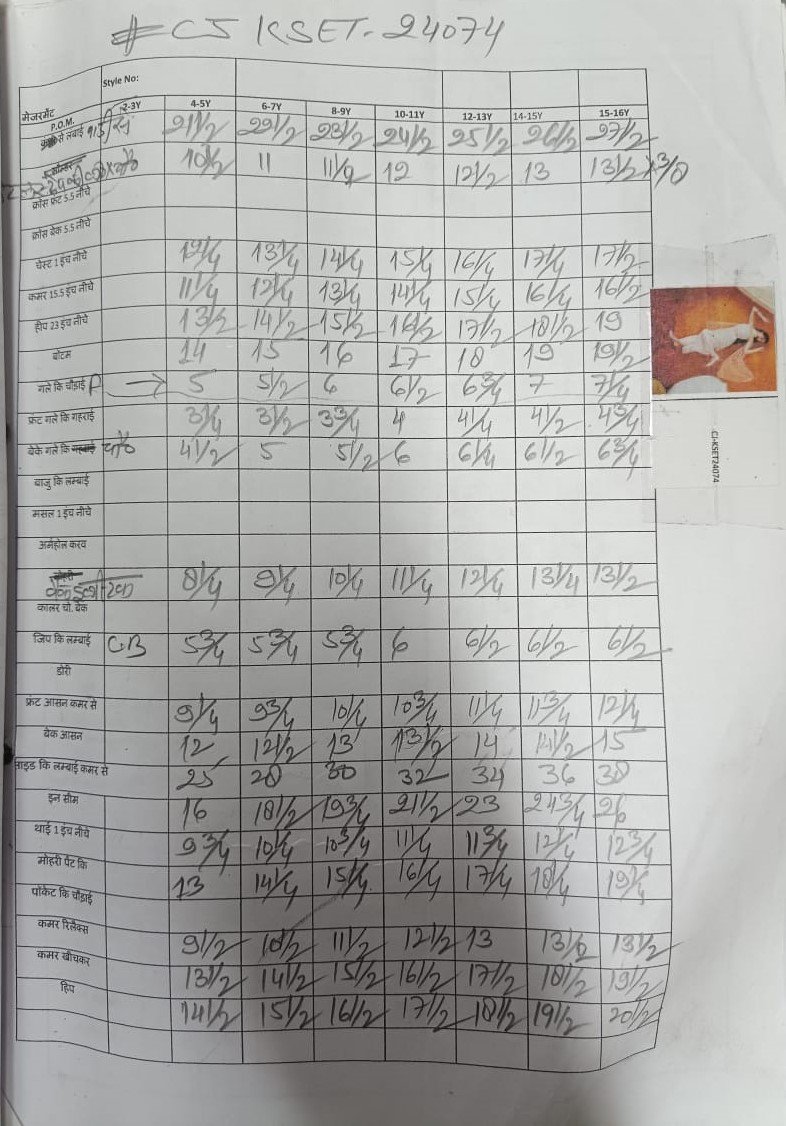 # CJ KSET-24074
Style No:
मेजरमेंट P.O.M. 2-3Y 4-5Y 6-7Y 8-9Y 10-11Y 12-13Y 14-15Y 15-16Y
से लंबाई 21 1/2 22 1/2 23 1/2 24 1/2 25 1/2 26 1/2 27 1/2
10 1/2 11 11 1/2 12 12 1/2 13 13 1/2
क्रोस फ्रंट 5.5 नीचे
क्रोस बेक 5.5 नीचे
चेस्ट 1 इंच नीचे 12 1/4 13 1/4 14 1/4 15 1/4 16 1/4 17 1/4 17 1/2
कमर 15.5 इंच नीचे 11 1/4 12 1/4 13 1/4 14 1/4 15 1/4 16 1/4 16 1/2
हीप 23 इंच नीचे 13 1/2 14 1/2 15 1/2 16 1/2 17 1/2 18 1/2 19
बोटम 14 15 16 17 18 19 19 1/2
गले कि चौड़ाई P → 5 5 1/2 6 6 1/2 6 3/4 7 7 1/4
फ्रंट गले कि गहराई 3 1/4 3 1/2 3 3/4 4 4 1/4 4 1/2 4 3/4
बेक गले कि 4 1/2 5 5 1/2 6 6 1/4 6 1/2 6 3/4
बाजु कि लम्बाई
मसल 1 इंच नीचे
अर्महोल करव
8 1/4 9 1/4 10 1/4 11 1/4 12 1/4 13 1/4 13 1/2
कालर चो. बेक
जिप कि लम्बाई C.B 5 3/4 5 3/4 5 3/4 6 6 1/2 6 1/2 6 1/2
डोरी
फ्रंट आसन कमर से 9 1/4 9 3/4 10 1/4 10 3/4 11 1/4 11 3/4 12 1/4
बेक आसन 12 12 1/2 13 13 1/2 14 14 1/2 15
साइड कि लम्बाई कमर से 25 28 30 32 34 36 38
इन सीम 16 18 1/2 19 3/4 21 1/2 23 24 3/4 26
थाई 1 इंच नीचे 9 3/4 10 1/4 10 3/4 11 1/4 11 3/4 12 1/4 12 3/4
मोहरी पैंट कि 13 14 1/4 15 1/4 16 1/4 17 1/4 18 1/4 19 1/4
पॉकेट कि चौड़ाई
कमर रिलैक्स 9 1/2 10 1/2 11 1/2 12 1/2 13 13 1/2
कमर खींचकर 13 1/2 14 1/2 15 1/2 16 1/2 17 1/2 18 1/2 19 1/2
हिप 14 1/2 15 1/2 16 1/2 17 1/2 18 1/2 19 1/2 20 1/2
CJ-KSET24074